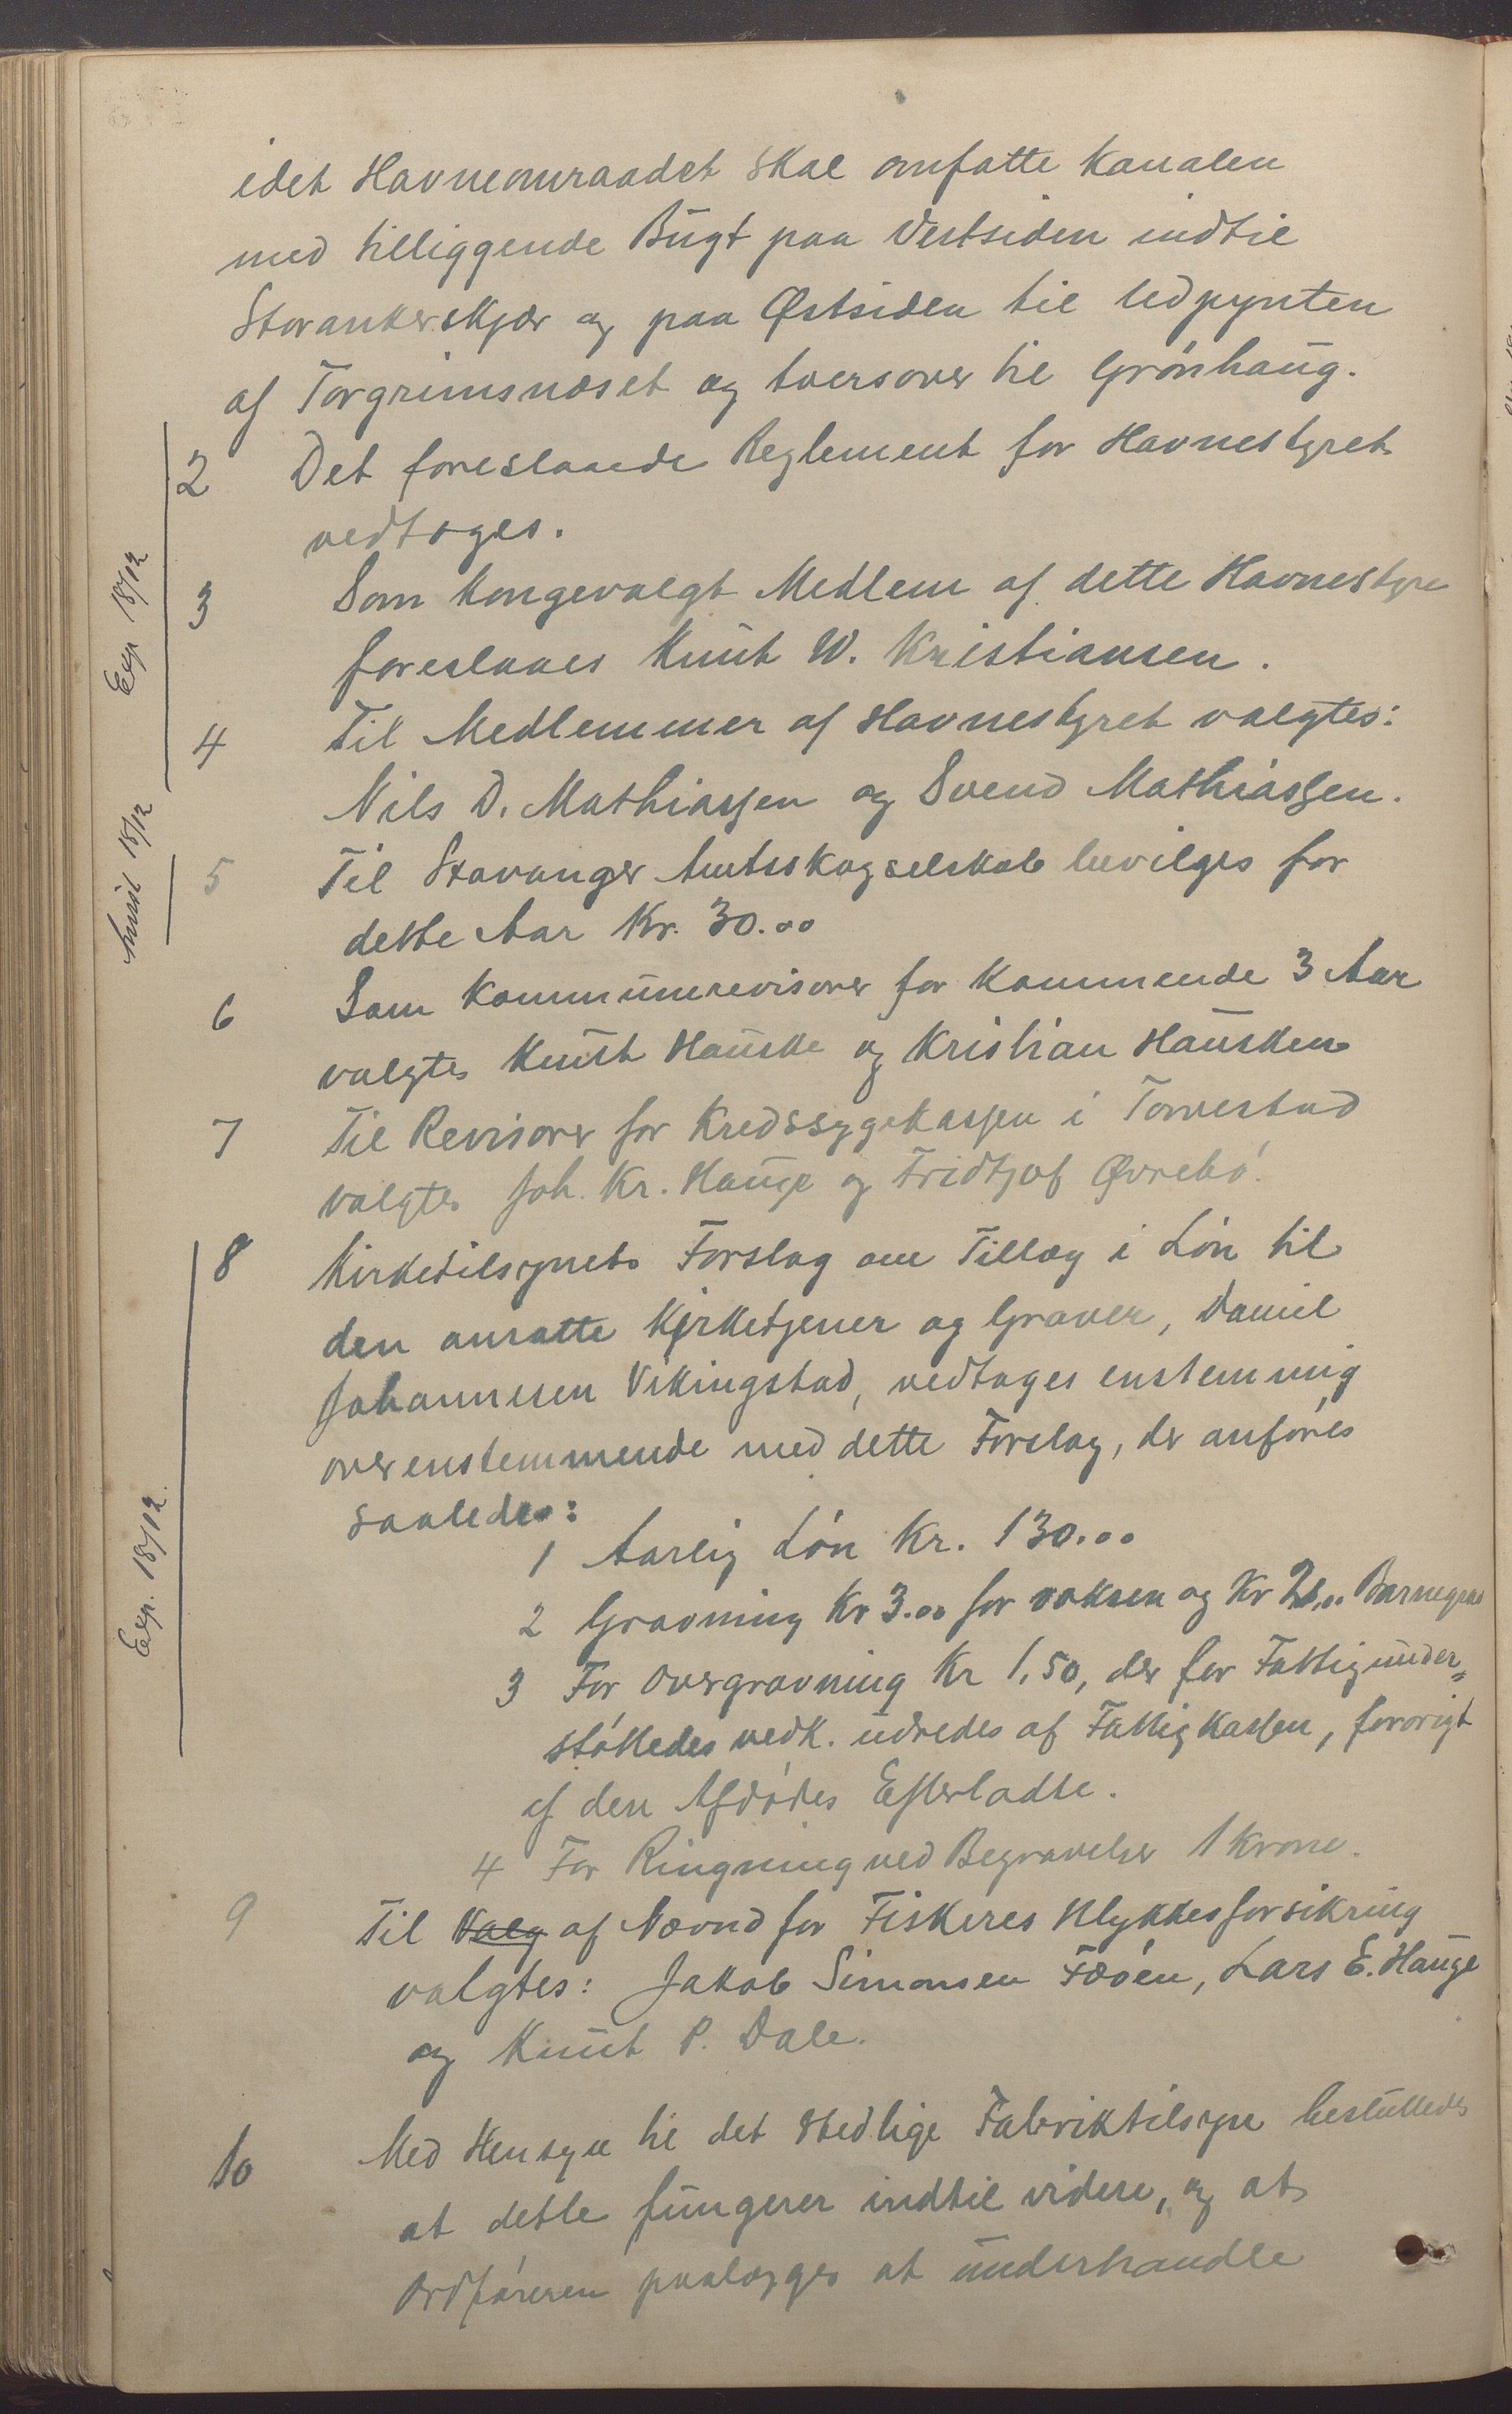 idet Havneomraadet skal omfatte Kanalen
med tilliggende Bugt paa Vestsiden indtil
Storankerskjær og paa Østsiden til Udpynten
af Torgrimsnæset og tversover til Grönhaug.
2 Det foreslaaede Reglement for Havnestyret
vedtoges.
Exp 18/12
3 Som Kongevalgt Medlem af dette Havnestyre
foreslaaes Knut W. Kristiansen.
4 Til Medlemmer af Havnestyret valgtes:
Nils D. Mathiassen og Svend Mathiassen.
18/12
5 Til Stavanger Amtsskogselskab bevilges for
dette Aar Kr. 30.00
6 Som Kommunerevisorer for Kommende 3 Aar
valgtes Knut Hauske og Kristian Hausken
7 Til Revisorer for Kredssygekassen i Torvestad
valgtes Joh. Kr. Hauge og Fridtjof Øvrebó.
8 Kirketilsynets Forslag om Tillæg i Lón til
den ansatte Kirketjener og Graver, Daniel
Johannesen Vikingstad, vedtages enstemmig
overenstemmende med dette Forslag, der anfóres
saaledes:
Exp. 18/12.
1 Aarlig Lón Kr. 130.00
2 Gravning Kr 3.00 for voksen og Kr 2,00 Barnegrav
3 For Overgravning Kr 1,50, der for Fattigunder=
stóttedes vedk. udredes af Fattigkassen, forórigt
af den Afdódes Efterladte.
4 For Ringning ved Begravelser 1 Krone.
9 Til Valg af Nævnd for Fiskeres Ulykkesforsikring
valgtes: Jakob Simonsen Fæóen, Lars E. Hauge
og Knut P. Dale.
10 Med Hensyn til det stedlige Fabriktilsyn besluttedes
at dette fungerer indtil videre, og at
Ordfóreren paalægges at underhandle